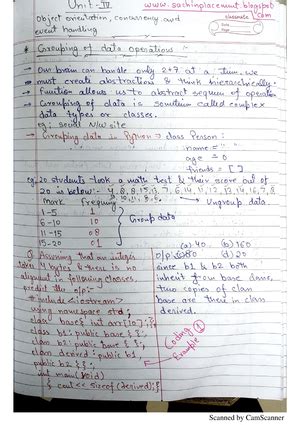 Unit - IV
www.sachinplacement.blogspot
.com
classmate
Date
Page
Object orientation, concurrency and
event handling
* Grouping of data operations :-
→ Our brain can handle only 2+7 at a time. we
→ must create abstraction & think hierarchically.
→ function allows us to abstract sequence of operation
→ Grouping of data is sometime called complex
data types or classes.
eg: social N/w site
→ Grouping data in Python → class Person :
name = " "
age = 0
friends = [ ]
eg. 20 students took a math test & their score out of
20 is below :-
Ungroup data
Mark
1-5
6-10
11-15
15-20
1
10
08
01
Group data
Q Assuming that an integer
takes 4 bytes & there is no
alignment in following classes,
predict the o/p :-
# include <iostream>
using namespace std ;
class base { int arr[10]; };
class b1 : public base { };
class b2 : public base { };
class derived : public b1,
public b2 { };
int main (void)
{ cout << sizeof (derived); }
(a) 40
(b) 160
o/p : 80
(d) 20
since b1 & b2 both
inherit from base class,
two copies of class
base are there in class
derived.
Coding
Example
1
Scanned by CamScanner